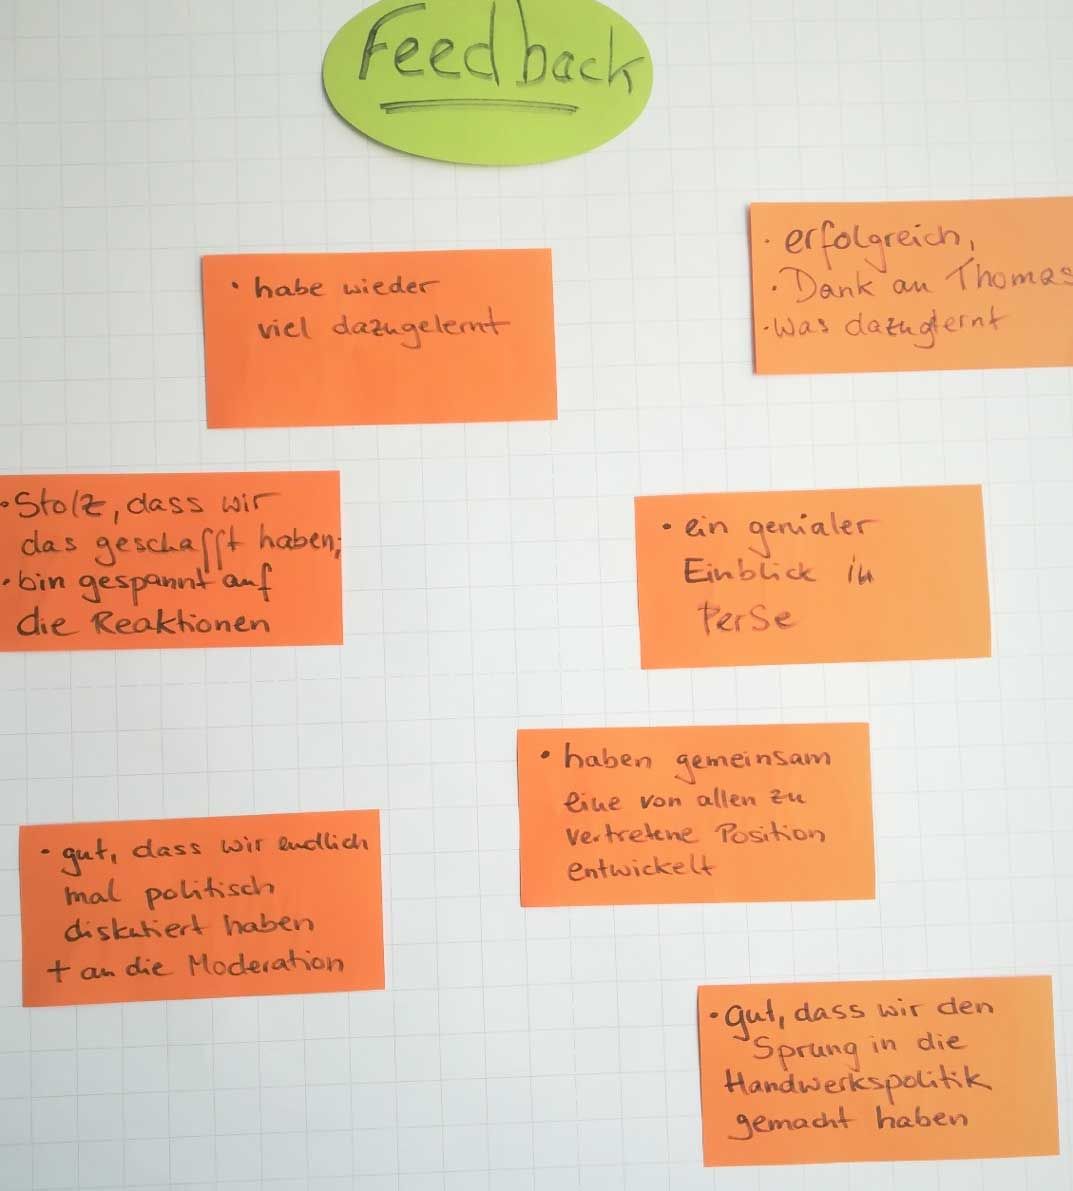 Feedback
• habe wieder
viel dazugelernt
• erfolgreich,
• Dank an Thomas
• Was dazuglernt
• Stolz, dass wir
das geschafft haben;
• bin gespannt auf
die Reaktionen
• ein genialer
Einblick in
PerSe
• haben gemeinsam
eine von allen zu
vertretene Position
entwickelt
• gut, dass wir endlich
mal politisch
diskutiert haben
+ an die Moderation
• gut, dass wir den
Sprung in die
Handwerkspolitik
gemacht haben